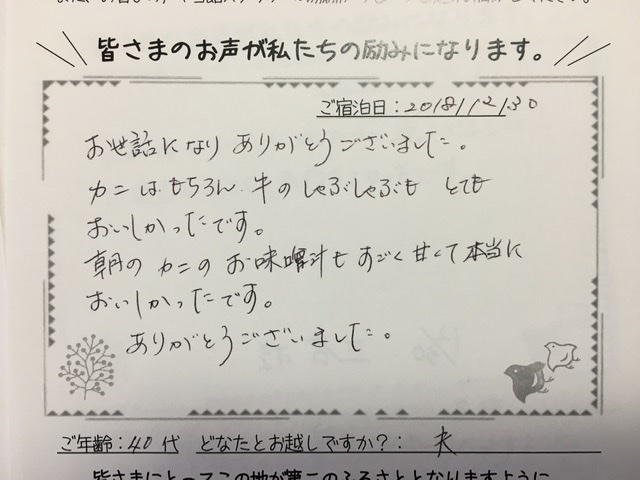 皆さまのお声が私たちの励みになります。
ご宿泊日：2018/12/30
お世話になりありがとうございました。
カニはもちろん、牛のしゃぶしゃぶも とても
おいしかったです。
朝のカニのお味噌汁もすごく甘くて本当に
おいしかったです。
ありがとうございました。
ご年齢：40代 どなたとお越しですか？： 夫
皆さまにとってこの地が第二のふるさととなりますように